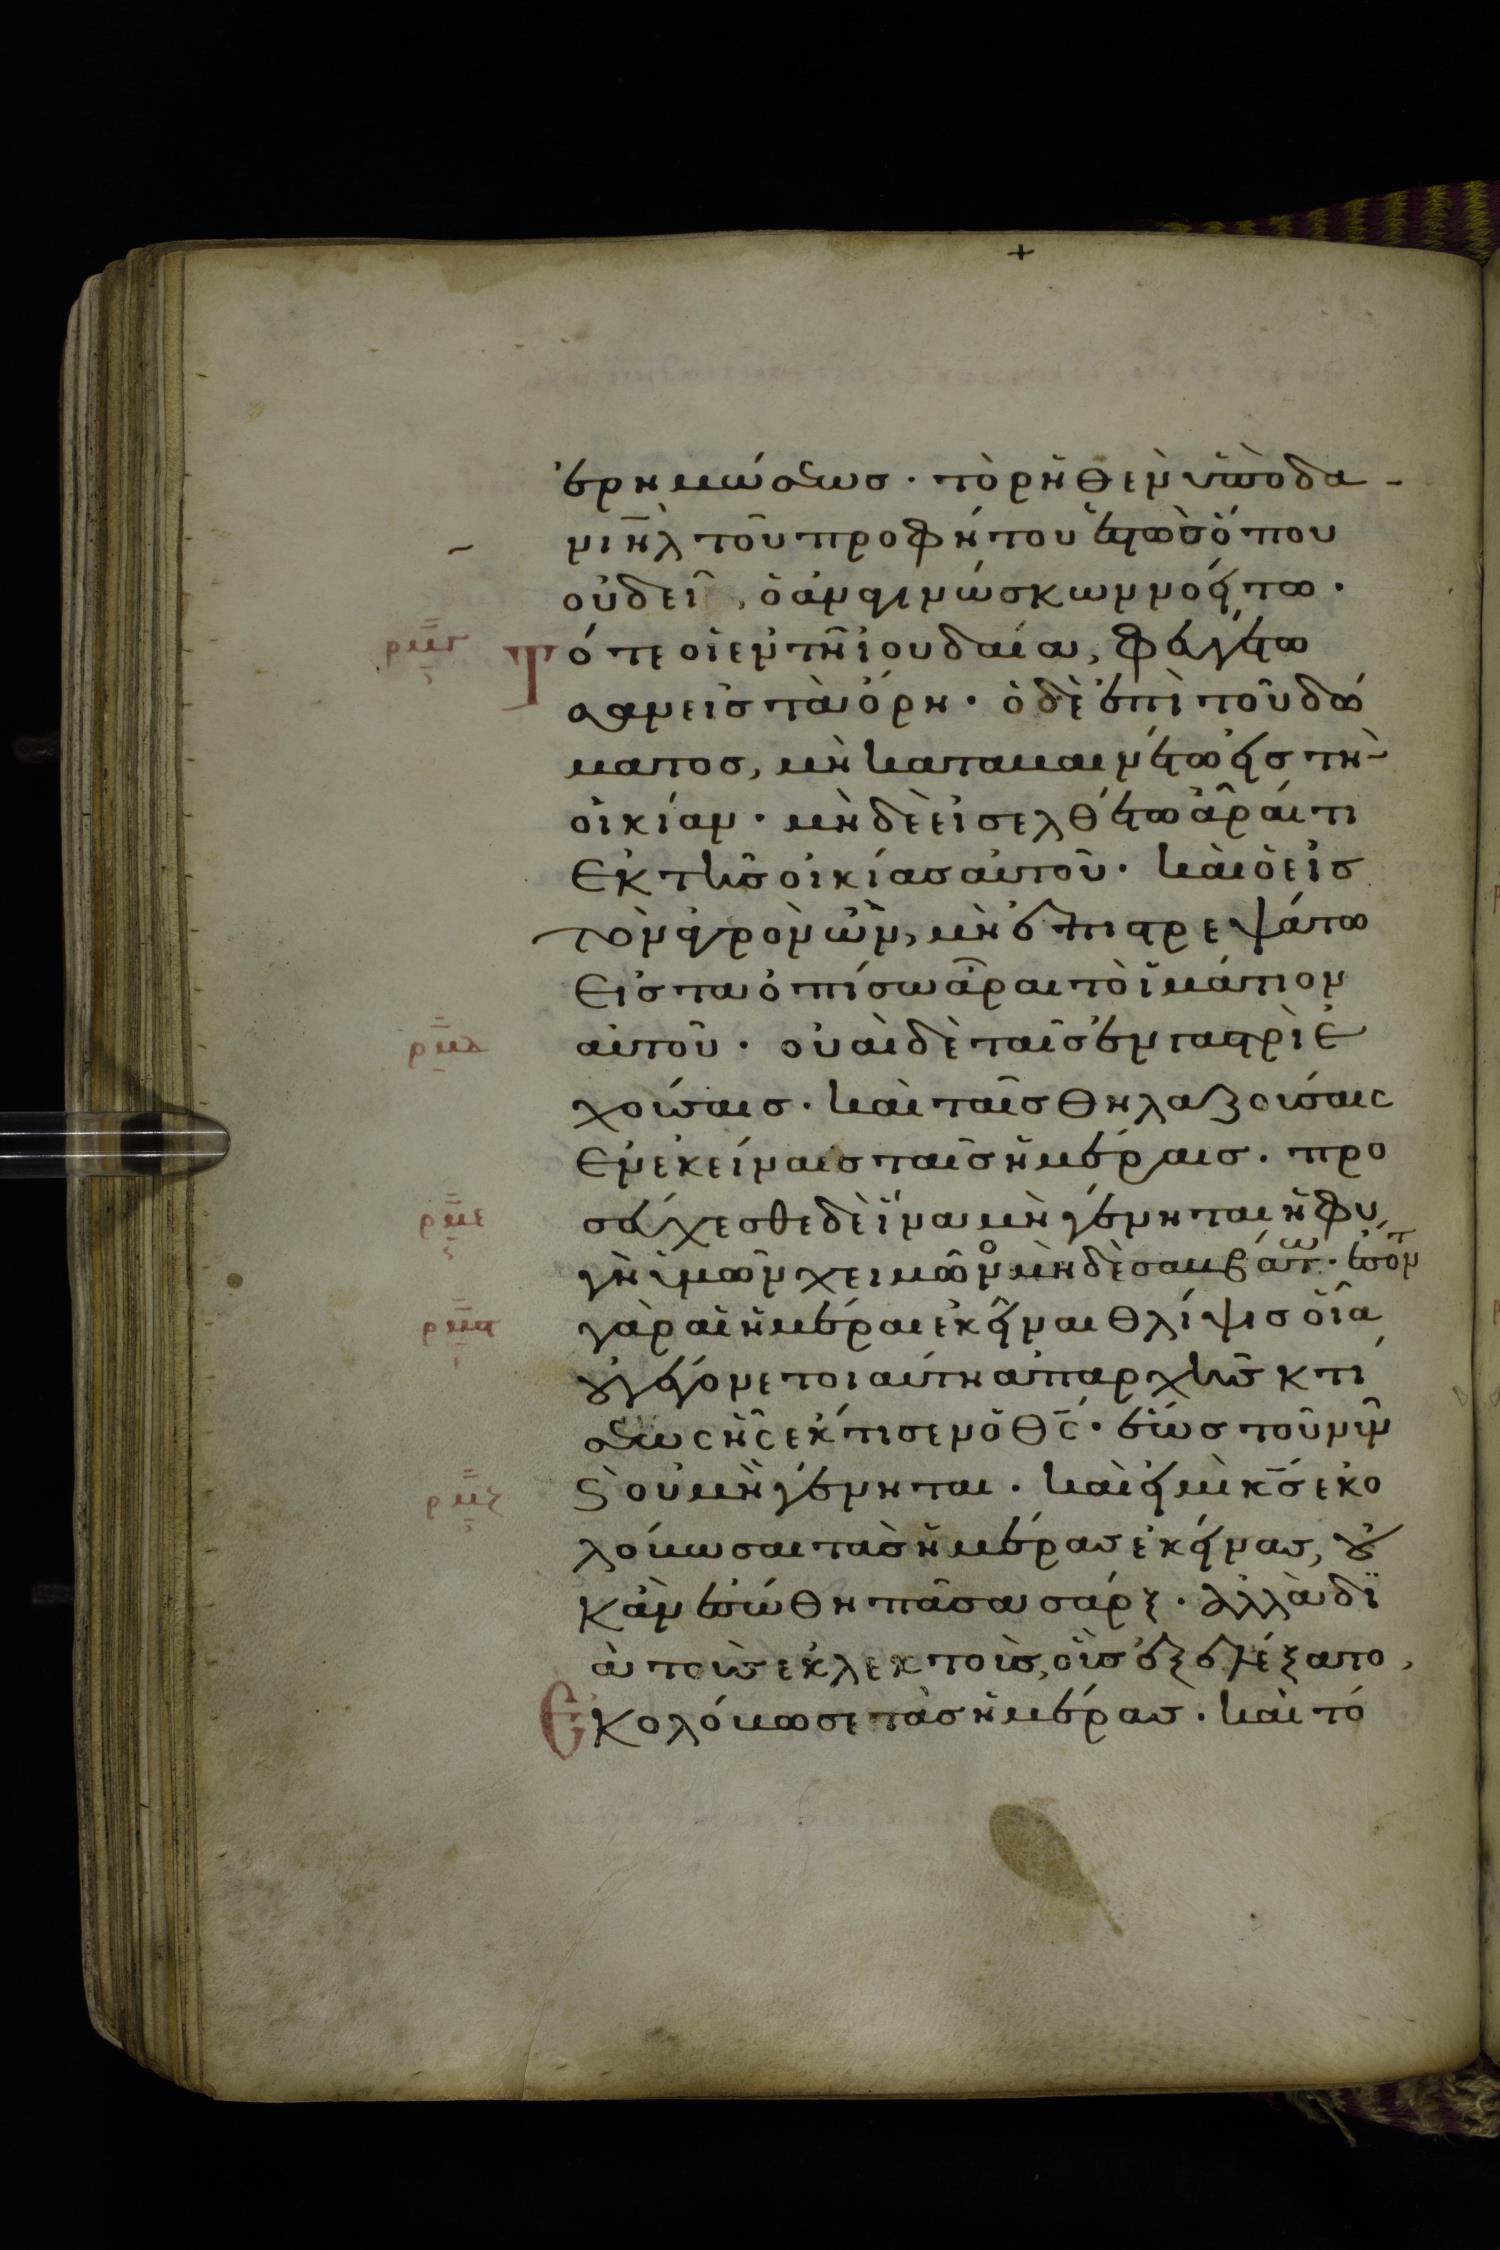 ἐρημώσεως· τὸ ῥηθὲν ὑπὸ δα-
νιὴλ τοῦ προφήτου ἑστὼς ὅπου
οὐ δεῖ, ὁ ἀναγινώσκων νοείτω·
ρμγ Τότε οἱ ἐν τῇ ἰουδαία, φευγέτω
σαν εἰς τὰ ὄρη· ὁ δὲ ἐπὶ τοῦ δώ
ματος, μὴ καταβαινέτω εἰς τὴν
οἰκίαν· μὴ δὲ εἰσελθέτω ἆραί τι
ἐκ τῆς οἰκίας αὐτοῦ· καὶ ὁ εἰς
τὸν ἀγρὸν ὢν, μὴ ἐπιστρεψάτω
εἰς τὰ ὀπίσω ἆραι τὸ ἱμάτιον
ρμδ αὐτοῦ· οὐαὶ δὲ ταῖς ἐν γαστρὶ ἐ
χούσαις· καὶ ταῖς θηλαζούσαις
ἐν ἐκείναις ταῖς ἡμέραις· προ
ρμε σεύχεσθε δὲ ἵνα μὴ γένηται ἡ φυ
γὴ ὑμῶν χειμῶνος μὴ δὲ σαββάτων· ἔσονται
ρμϛ γὰρ αἱ ἡμέραι ἐκεῖναι θλίψις οἵα
οὐ γέγονε τοιαύτη ἀπαρχῆς κτί
σεως ἧς ἔκτισεν ὁ θς· ἕως τοῦ νῦν
ρμζ καὶ οὐ μὴ γένηται· καὶ εἰ μὴ κς ἐκο
λόβωσε τὰς ἡμέρας ἐκείνας, οὐ
κἂν ἐσώθη πᾶσα σάρξ· ἀλλὰ δι
ὰ τοὺς ἐκλεκτοὺς, οὓς ἐξελέξατο,
Ἐκολόβωσε τὰς ἡμέρας· καὶ τό